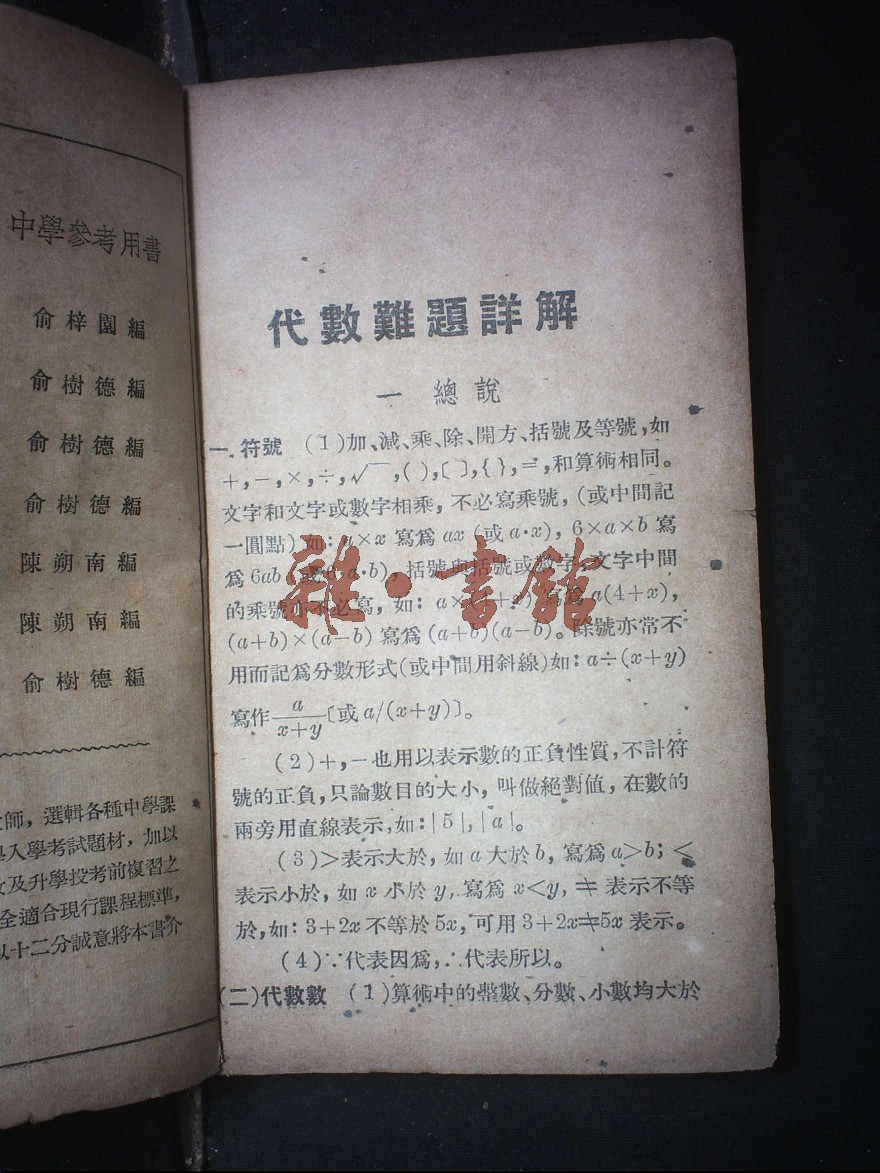 中學參考用書
俞梓園編
俞樹德編
俞樹德編
俞樹德編
陳朔南編
陳朔南編
俞樹德編
師，選輯各種中學課
入學考試題材，加以
及升學投考前複習之
全適合現行課程標準，
以十二分誠意將本書介
代數難題詳解
一 總說
一.符號 (1)加、減、乘、除、開方、括號及等號，如
+,-,×,÷,√‾,( ),〔 〕,{ },=,和算術相同。
文字和文字或數字相乘，不必寫乘號，(或中間記
一圓點)如：a×x 寫爲 ax (或 a·x), 6×a×b 寫
爲 6ab (或 6·a·b)，括號與括號或數字，文字中間
的乘號亦不必寫，如：a×(4+x) 寫爲 a(4+x),
(a+b)×(a-b) 寫爲 (a+b)(a-b)。除號亦常不
用而記爲分數形式(或中間用斜線)如：a÷(x+y)
寫作 a/x+y〔或 a/(x+y)〕。
(2)+,-也用以表示數的正負性質，不計符
號的正負，只論數目的大小，叫做絕對值，在數的
兩旁用直線表示，如：|5|,|a|。
(3)>表示大於，如 a 大於 b，寫爲 a>b；<
表示小於，如 x 小於 y, 寫爲 x<y, ≠ 表示不等
於，如：3+2x 不等於 5x，可用 3+2x≠5x 表示。
(4)∵代表因爲，∴代表所以。
(二)代數數 (1)算術中的整數、分數、小數均大於
雜·書館